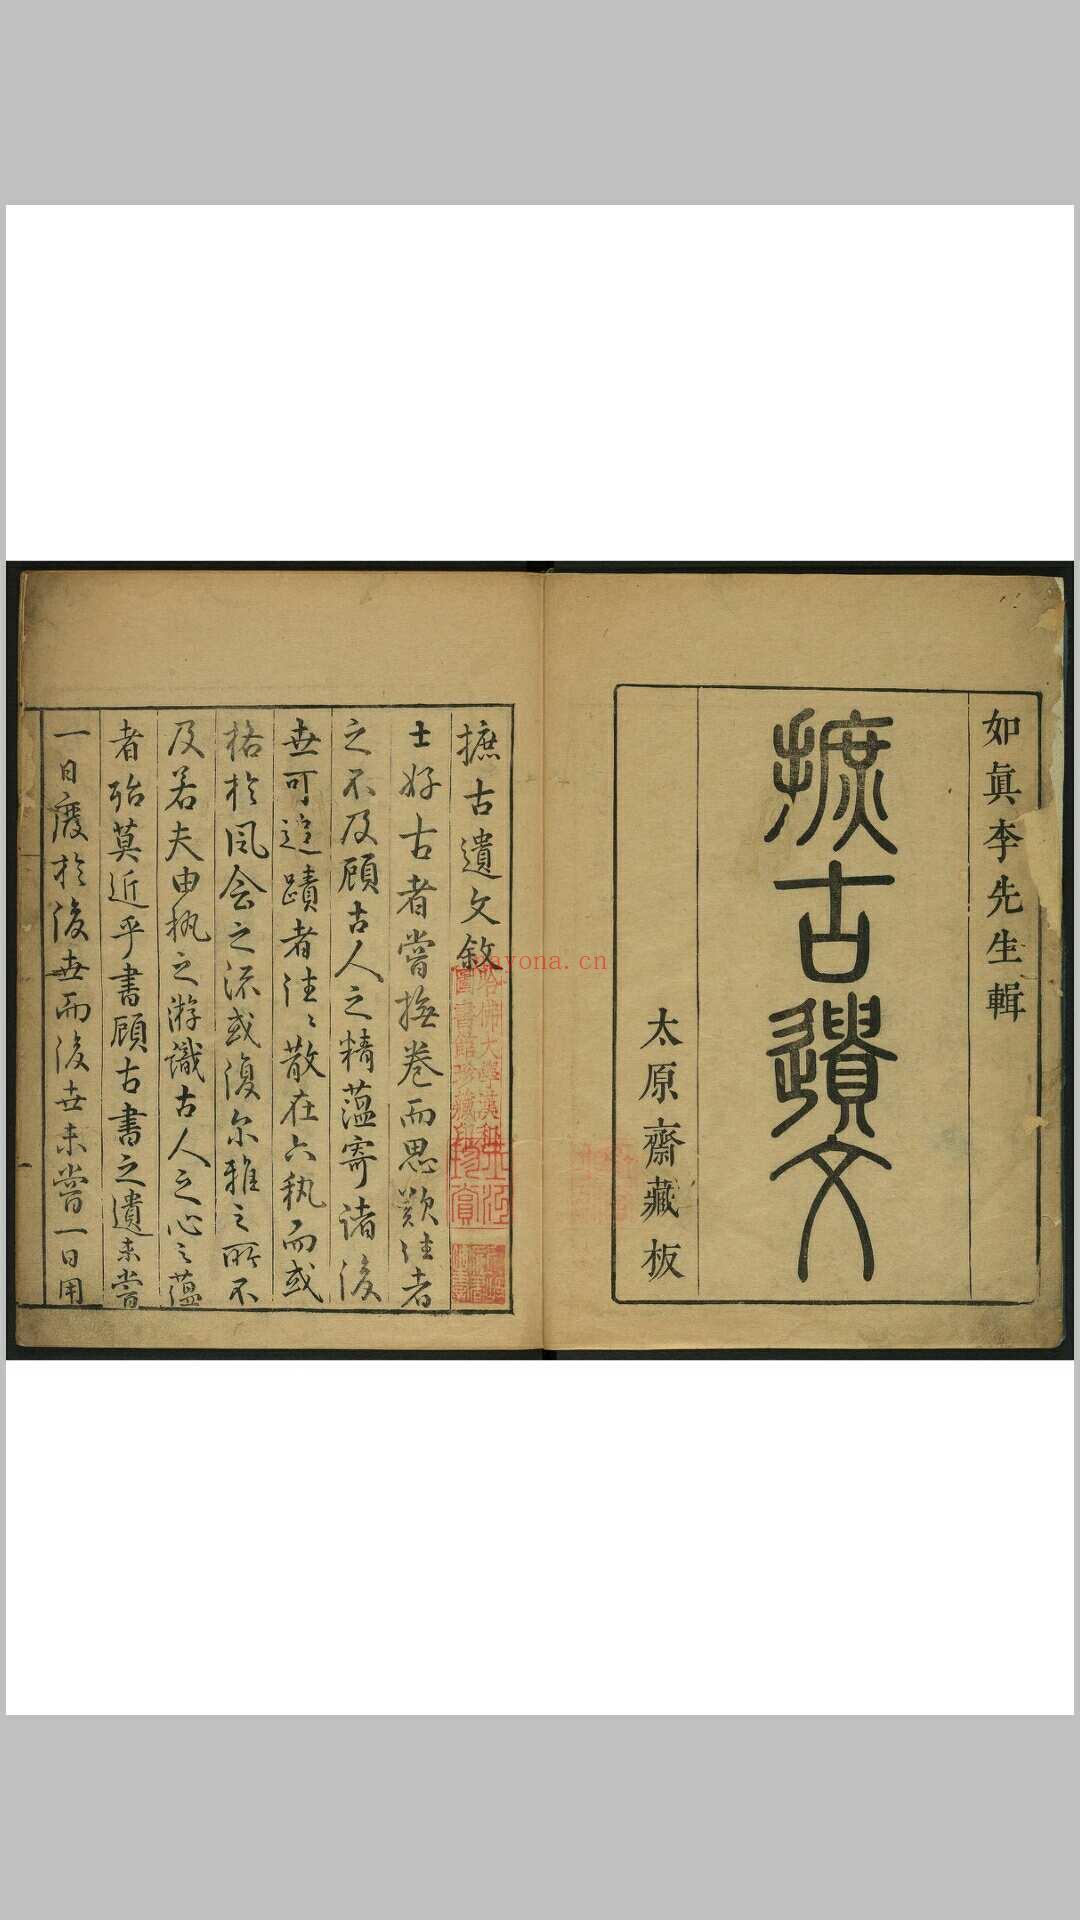 如眞李先生輯
摭古遺文
太原齋藏板
摭古遺文敘
士好古者嘗撫卷而思歎往者
之不及顧古人之精蘊寄諸後
世可追蹟者往〻散在六執而或
格於風會之流或復尔雅之所不
及若夫由執之游識古人之心之蘊
者殆莫近乎書顧古書之遺未嘗
一日廢於後世而後世未嘗一日用
哈佛大學漢和
圖書館珍藏印
ayona.cn